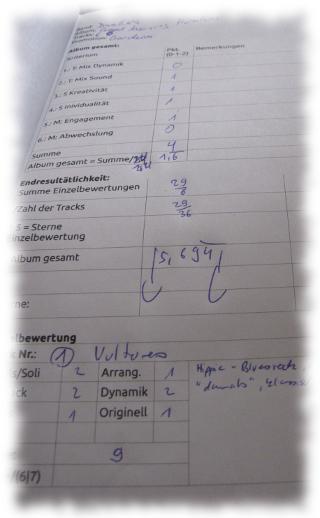 Album gesamt:
Kriterium Pkt. (0-1-2) Bemerkungen
1.: T: Mix Dynamik 0
2.: T: Mix Sound 1
3.: S Kreativität 1
4.: S Inividualität 1
5.: M: Engagement 1
6.: M: Abwechslung 0
Summe 4
Album gesamt = Summe/ 1,6
Endresultätlichkeit:
Summe Einzelbewertungen 29/6
/Zahl der Tracks 29/36
S = Sterne
inzelbewertung
lbum gesamt 5,694
ne:
elbewertung
Nr.: 1 Vultures
s/Soli 2 Arrang. 1 Hippie - Bluesrock
ck 2 Dynamik 2 "damals",
1 Originell 1
9
/(6|7)